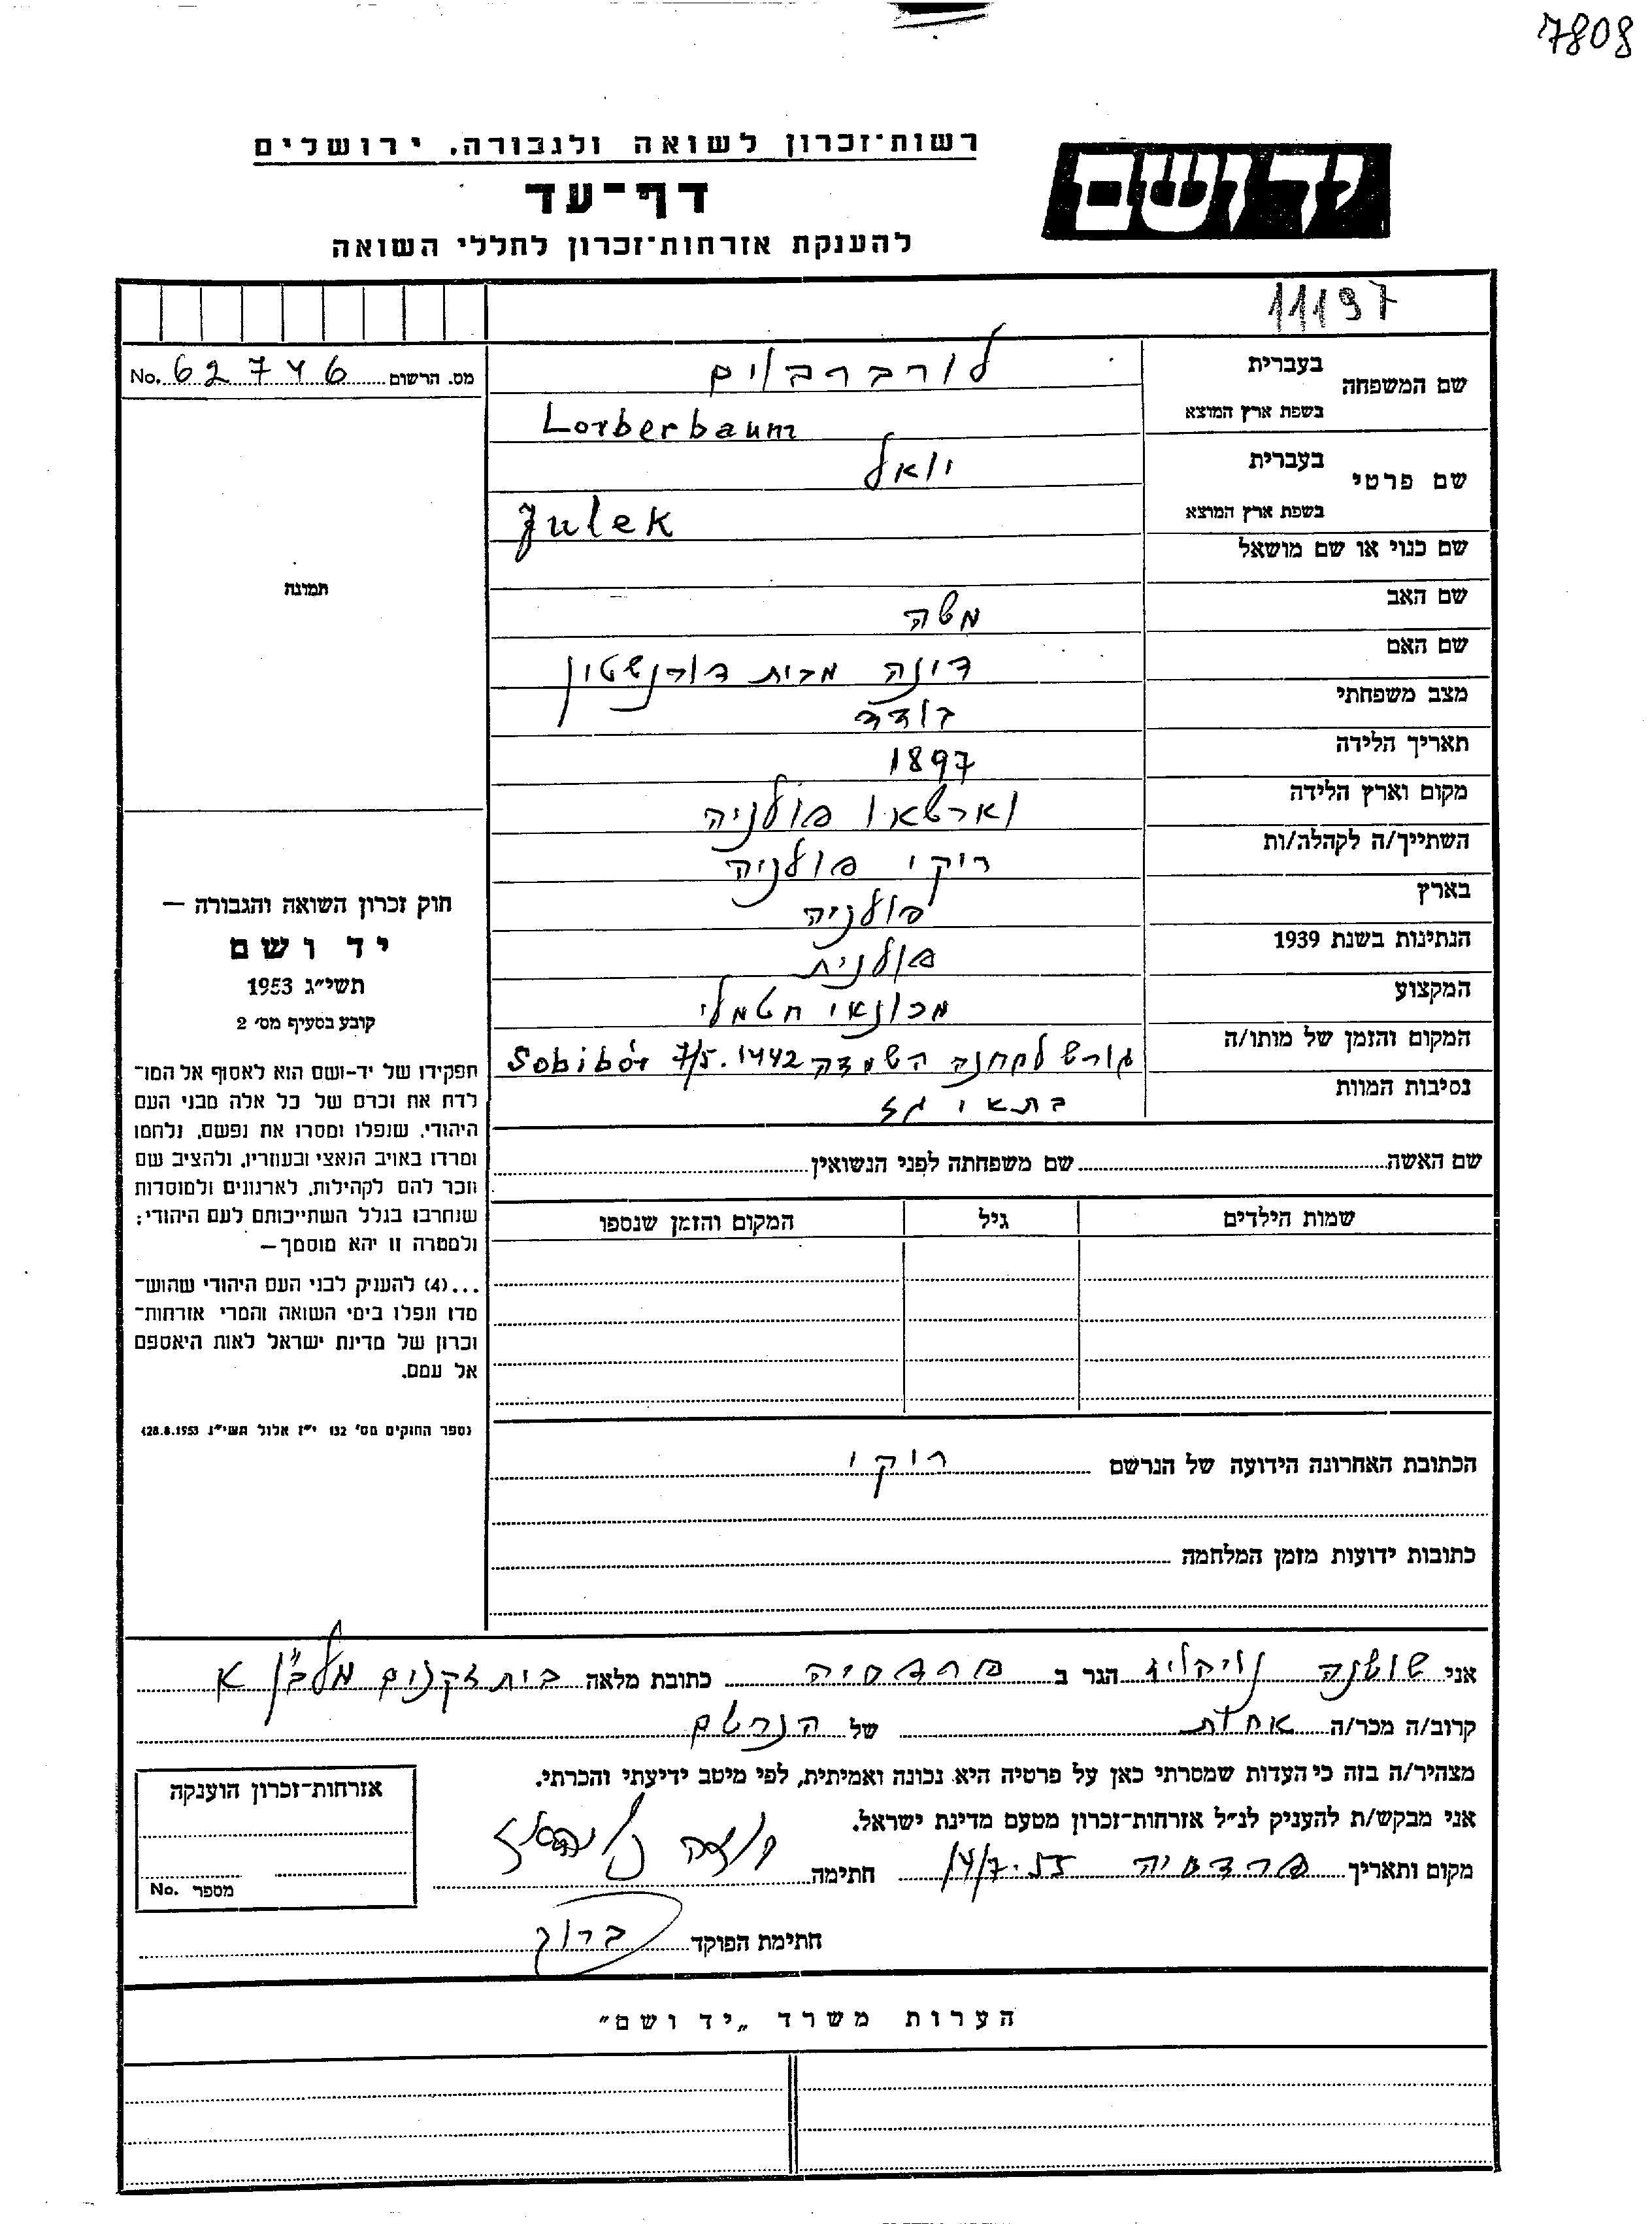 7808
רשות־זכרון לשואה ולגבורה, ירושלים
יד ושם
דף־עד
להענקת אזרחות־זכרון לחללי השואה
11197
No. 62746 מס. הרשום
שם המשפחה
בעברית לורברבוים
בשפת ארץ המוצא Lorberbaum
שם פרטי
בעברית יואל
בשפת ארץ המוצא Julek
שם כנוי או שם מושאל
שם האב משה
שם האם דינה מבית דורנשטון
מצב משפחתי בודד
תאריך הלידה 1897
מקום וארץ הלידה וארשאו פולניה
השתייך/ה לקהלה/ות ריקי פולניה
בארץ פולניה
הנתינות בשנת 1939 פולנית
המקצוע מכונאי חשמלי
המקום והזמן של מותו/ה גורש למחנה השמדה Sobibór 7/5.1942
נסיבות המוות בתאי גז
שם האשה שם משפחתה לפני הנשואין
שמות הילדים גיל המקום והזמן שנספו
תמונה
חוק זכרון השואה והגבורה —
יד ושם
תשי״ג 1953
קובע בסעיף מס׳ 2
תפקידו של יד-ושם הוא לאסוף אל המו־
לדת את זכרם של כל אלה מבני העם
היהודי, שנפלו ומסרו את נפשם, נלחמו
ומרדו באויב הנאצי ובעוזריו, ולהציב שם
וזכר להם לקהילות, לארגונים ולמוסדות
שנחרבו בגלל השתייכותם לעם היהודי;
ולמטרה זו יהא מוסמך—
...(4) להעניק לבני העם היהודי שהוש־
מדו ונפלו בימי השואה והמרי אזרחות־
זכרון של מדינת ישראל לאות היאספם
אל עמם.
(ספר החוקים מס׳ 132 י״ז אלול תשי״ג 28.8.1953)
הכתובת האחרונה הידועה של הנרשם ריקי
כתובות ידועות מזמן המלחמה
אני שושנה הגר ב פרדסיה כתובת מלאה בית זקנים מלב״ן א
קרוב/ה מכר/ה אחות של הנרשם
מצהיר/ה בזה כי העדות שמסרתי כאן על פרטיה היא נכונה ואמיתית, לפי מיטב ידיעתי והכרתי.
אני מבקש/ת להעניק לנ״ל אזרחות־זכרון מטעם מדינת ישראל.
מקום ותאריך פרדסיה 14/7.55 חתימה
חתימת הפוקד ברוך
אזרחות־זכרון הוענקה
No. מספר
הערות משרד „יד ושם״